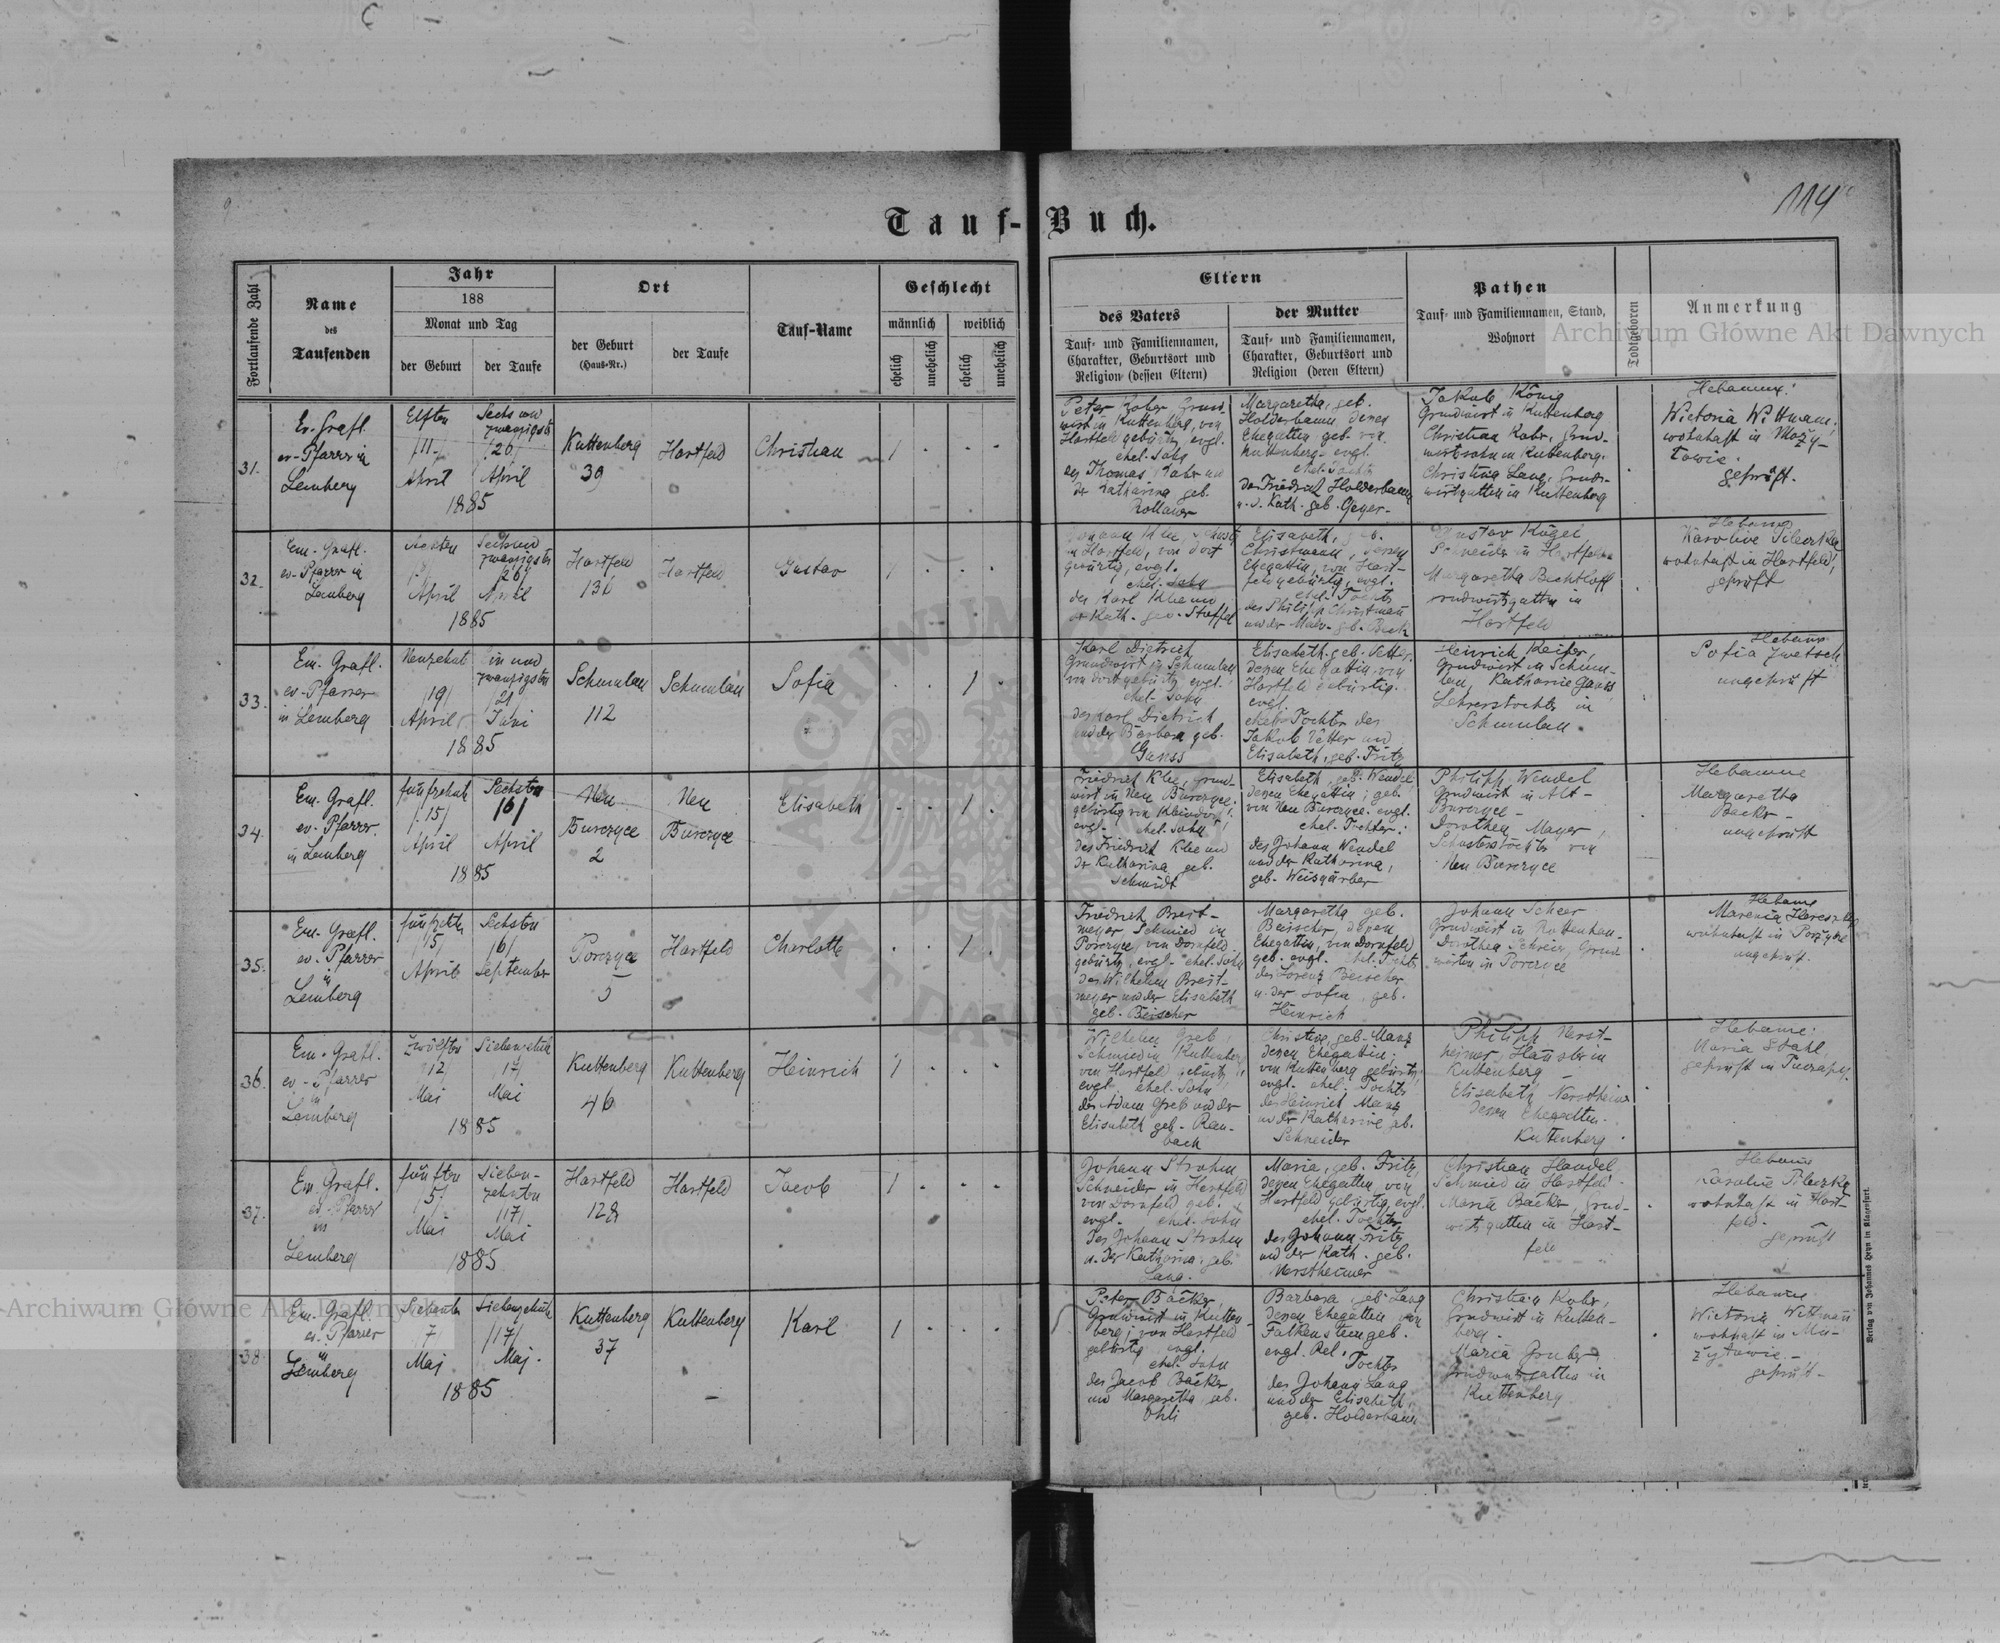 114
Tauf-Buch.
Fortlaufende Zahl
Name
des
Taufenden
Jahr
188
Monat und Tag
der Geburt
der Taufe
Ort
der Geburt
(Haus-Nr.)
der Taufe
Tauf-Name
Geschlecht
männlich
weiblich
ehelich
unehelich
ehelich
unehelich
Eltern
des Vaters
Tauf- und Familiennamen,
Charakter, Geburtsort und
Religion (dessen Eltern)
der Mutter
Tauf- und Familiennamen,
Charakter, Geburtsort und
Religion (deren Eltern)
Pathen
Tauf- und Familiennamen, Stand,
Wohnort
Todtgeboren
Anmerkung
Archiwum Główne Akt Dawnych
31.
Grafl.
ev-Pfarrer in
Lemberg
Elften
/11/
April
Sechs und
zwanzigsten
/26/
April
1885
Kuttenberg
39
Hartfeld
Christian
1
Peter
wirt in Kuttenberg, von
Hartfeld gebürtig, evgl.
ehel. Sohn
Thomas
der Katharina geb.
Margaretha, geb.
Holderbaum, deren
Ehegattin geb. von
Kuttenberg evgl.
ehel. Tochter
des Friedrich Holderbaum
u. d. Kath. geb. Geyer
Jakob König
Grundwirt in Kuttenberg
Christian Kobr,
wirtssohn in Kuttenberg.
Christina Lang, Grund-
wirtsgattin in Kuttenberg
Hebamme:
Wictoria Wittmann,
wohnhaft in Mozy-
towie.
geprüft.
32.
Em. Grafl.
ev-Pfarrer in
Lemberg
April
Sechsund
zwanzigsten
/26/
April
1885
Hartfeld
136
Hartfeld
Gustav
1
in Hartfeld, von dort
gebürtig, evgl.
ehel. Sohn
des Karl Klee und
der Kath. geb. Steffel
Elisabeth, geb.
Christmann, dessen
Ehegattin, von Hart-
feld gebürtig, evgl.
ehel. Tochter
des Philipp Christmann
und der geb. Beck
Gustav Kügel
Schneider in Hartfeld
Margaretha Bechtloff
Grundwirtsgattin in
Hartfeld
Hebamme
Karoline Pileczka
wohnhaft in Hartfeld,
geprüft
33.
Em. Grafl.
ev-Pfarrer
in Lemberg
Neunzehnten
/19/
April
Ein und
zwanzigsten
/21/
Juni
1885
Schumlau
112
Schumlau
Sofia
1
Karl Dietrich
Grundwirt in Schumlau
von dort gebürtig evgl.
ehel. Sohn
des Karl Dietrich
und der Barbara geb.
Ganss
Elisabeth geb. Vetter,
dessen Ehegattin, von
Hartfeld gebürtig.
evgl.
ehel. Tochter des
Jakob Vetter und
Elisabeth, geb. Fritz
Heinrich Keiper,
Grundwirt in Schum-
lau, Katharine Ganss
Lehrerstochter in
Schumlau.
Hebamme
Sofia Zwetsch
ungeprüft
34.
Em. Grafl.
ev. Pfarrer.
in Lemberg
fünfzehnten
/15/
April
Sechsten
/6/
April
1885
Neu
Burczyce
2
Neu
Burczyce
Elisabeth
1
Friedrich Klee, Grund-
wirt in Neu Burczyce.
gebürtig von
evgl. ehel. Sohn
des Friedrich Klee und
der Katharina geb.
Schmidt
Elisabeth, geb. Wendel
dessen Ehegattin, geb.
von Neu Burczyce. evgl.
ehel. Tochter:
des Johann Wendel
und der Katharina,
geb. Weisgärber
Philipp Wendel
Grundwirt in Alt-
Burczyce -
Dorothea Mayer,
Schusterstochter von
Neu Burczyce
Hebamme
Margaretha
Becker -
ungeprüft
35.
Em. Grafl.
ev. Pfarrer
in
Lemberg
/15/
April
Sechsten
/6/
September
Porczyce
5
Hartfeld
Charlotte
1
Friedrich Breit-
meyer, Schmied in
Porczyce, von Dornfeld
gebürtig, evgl. ehel. Sohn
des Wilhelm Breit-
meyer und der Elisabeth
geb. Beischer
Margaretha geb.
Beischer, dessen
Ehegattin, von Dornfeld
geb. evgl. ehel. Tochter
des Lorenz Beischer
u. der Sofia, geb.
Heinrich
Johann Scheer
Grundwirt in Rottenhan.
Dorothea Schreier, Grund-
wirtin in Porczyce
Hebamme
wohnhaft in Porzyce
ungeprüft.
36.
Em. Grafl.
ev. Pfarrer
in
Lemberg
Zwölften
/12/
Mai
Siebenzehnten
/17/
Mai
1885
Kuttenberg
46
Kuttenberg
Heinrich
1
Wilhelm Greb,
Schmied in Kuttenberg
von Hartfeld gebürtig,
evgl. ehel. Sohn
des Adam Greb und der
Elisabeth geb. Rau-
bach
Christine, geb. Manz
dessen Ehegattin,
von Kuttenberg gebürtig,
evgl. ehel. Tochter
des Heinrich Manz
und der Katharine geb.
Schneider
Philipp Nerst-
heimer, Häusler in
Kuttenberg -
Elisabeth Nerstheimer
dessen Ehegattin.
Kuttenberg.
Hebame:
Maria Stahl,
geprüft in
37.
Em. Grafl.
ev. Pfarrer
in
Lemberg
fünften
/5/
Mai
Sieben-
zehnten
/17/
Mai
1885
Hartfeld
128
Hartfeld
Jacob
1
Johann Strohm
Schneider in Hartfeld
von Dornfeld geb.
evgl. ehel. Sohn
des Johann Strohm
u. der Katharina, geb.
Lang.
Maria, geb. Fritz,
dessen Ehegattin, von
Hartfeld gebürtig, evgl.
ehel. Tochter
des Johann Fritz
und der Kath. geb.
Nerstheimer
Christian Handel,
Schmied in Hartfeld
Maria Bäcker, Grund-
wirtsgattin in Hart-
feld
Hebame
Karoline Pileczka
wohnhaft in Hart-
feld.
geprüft
38.
Em. Grafl.
ev. Pfarrer
in
Lemberg
Siebenten
7
Maj
Siebenzehnten
/17/
Maj.
1885
Kuttenberg
37
Kuttenberg
Karl
1
Peter Bäcker,
Grundwirt in Kutten-
berg, von Hartfeld
gebürtig evgl.
ehel. Sohn
des Jacob Bäcker
und Margaretha geb.
Ohli
Barbara geb. Lang
dessen Ehegattin von
Falkenstein geb.
evgl. Rel.
Tochter
des Johann Lang
und der Elisabeth,
geb. Holderbaum
Christian Kobr,
Grundwirt in Kutten-
berg.
Maria Gruber,
Grundwirtsgattin in
Kuttenberg
Hebamme
Wictoria Wittmann
wohnhaft in Mo-
zytowie.-
geprüft.
Verlag von Johannes Heyn in Klagenfurt.
Archiwum Główne Akt Dawnych
ARCHIWUM GŁÓWNE AKT DAWNYCH